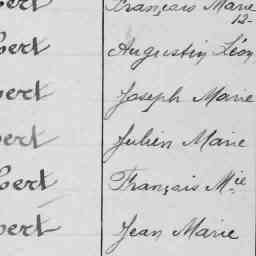 bert Français Marie
12-
bert Augustin Léon
bert Joseph Marie
bert Julien Marie
bert Français Mie
bert Jean Marie